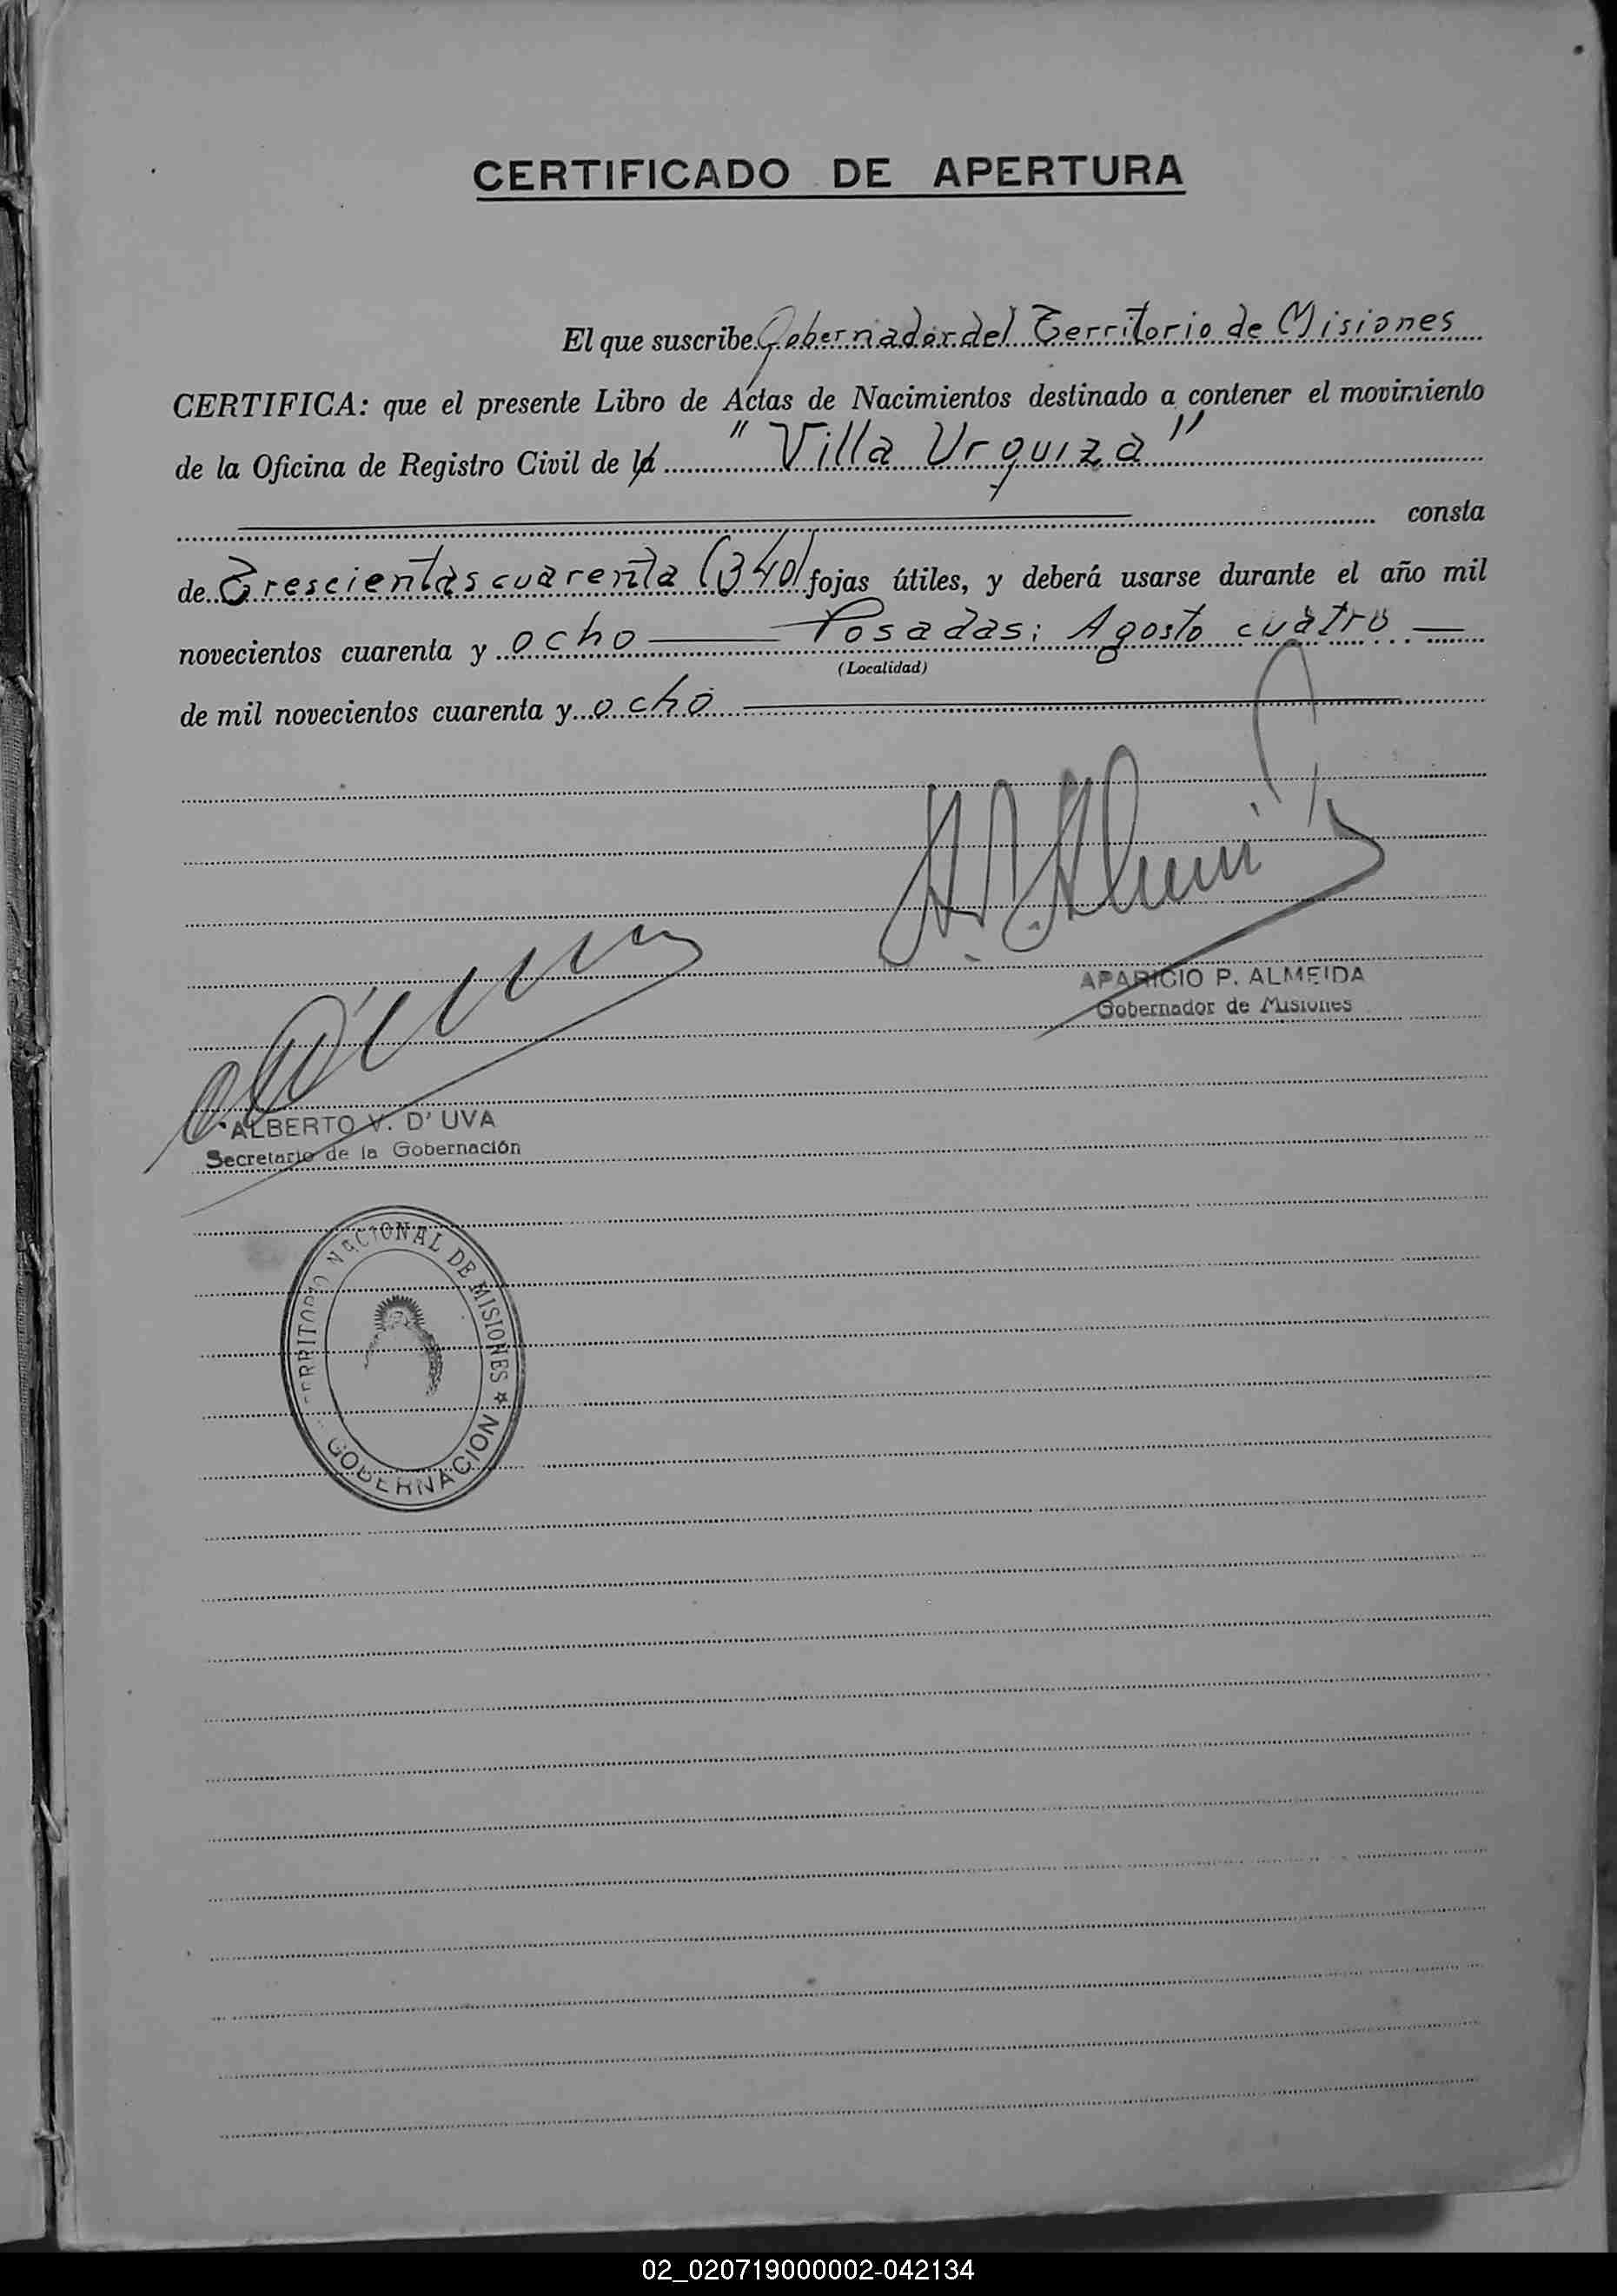 CERTIFICADO DE APERTURA
El que suscribe Gobernador del Territorio de Misiones
CERTIFICA: que el presente Libro de Actas de Nacimientos destinado a contener el movimiento
de la Oficina de Registro Civil de la "Villa Urquiza"
consta
de Trescientas cuarenta (340) fojas útiles, y deberá usarse durante el año mil
novecientos cuarenta y ocho — Posadas; Agosto cuatro —
(Localidad)
de mil novecientos cuarenta y ocho
APARICIO P. ALMEIDA
Gobernador de Misiones
ALBERTO V. D' UVA
Secretario de la Gobernación
TERRITORIO NACIONAL DE MISIONES ☆
GOBERNACION
02_020719000002-042134